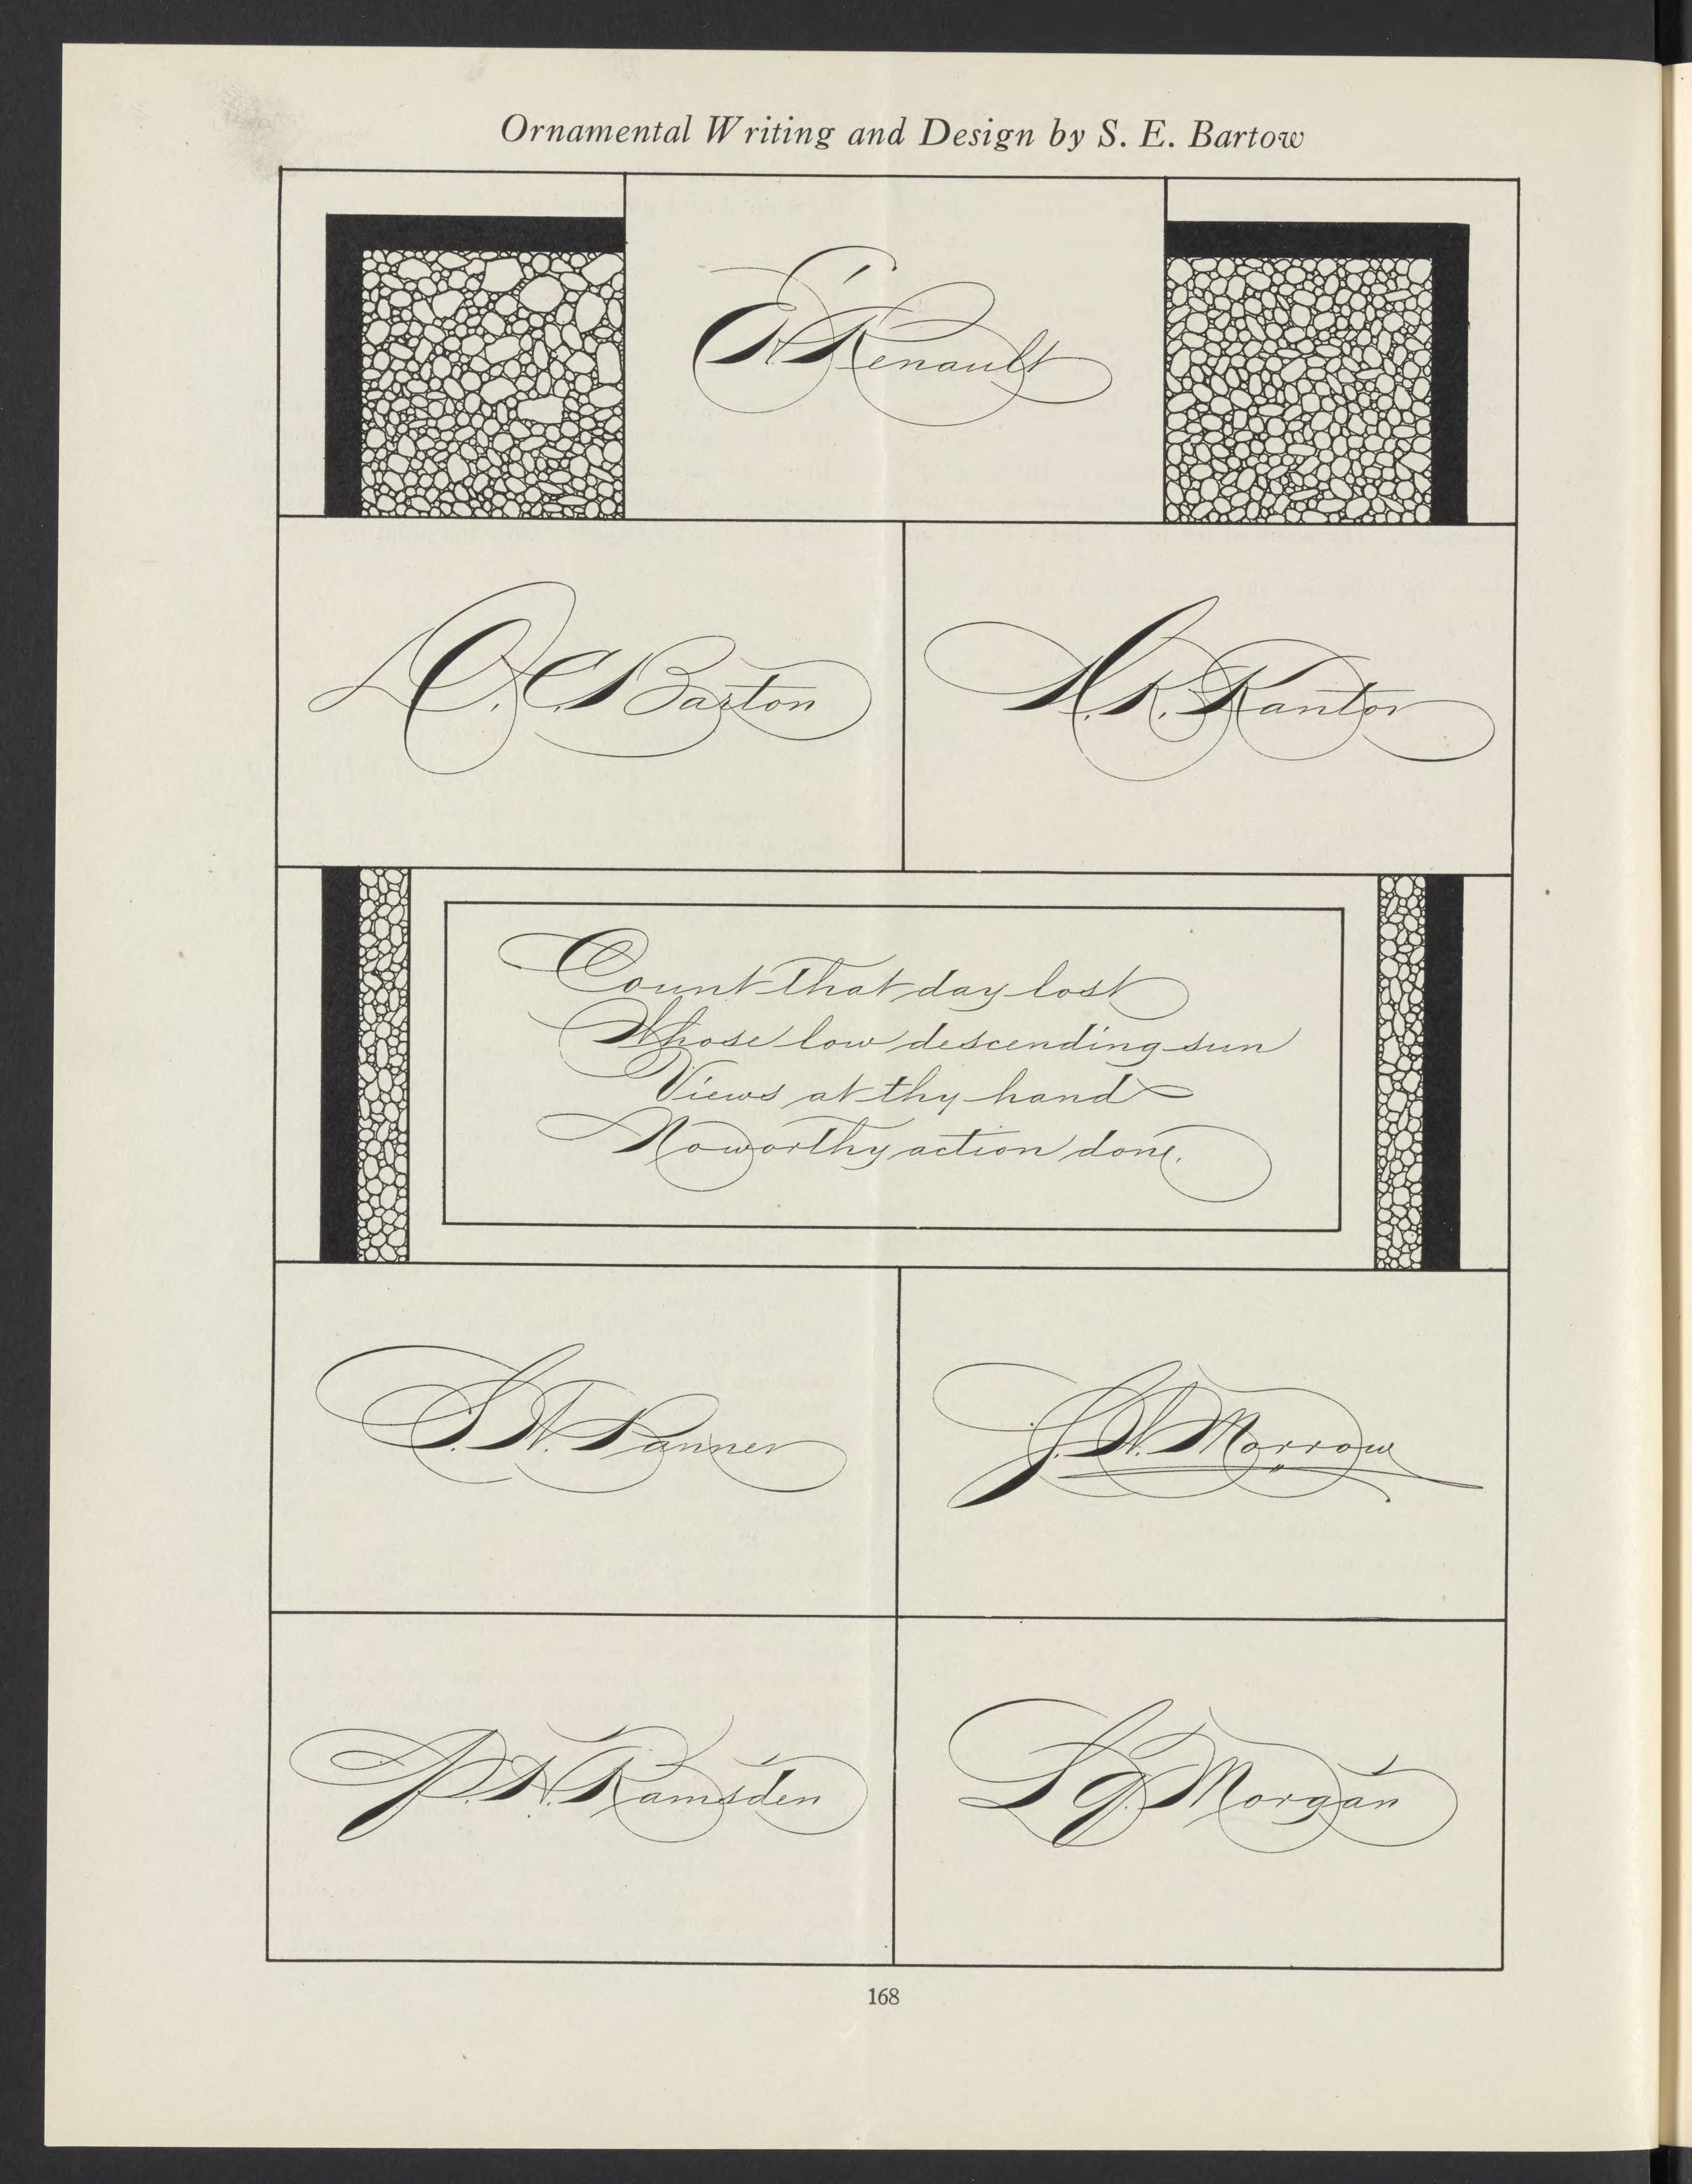 Ornamental Writing and Design by S. E. Bartow
Renault
O. C. Barton
Kantor
Count that day lost
Whose low descending sun
Views at thy hand
No worthy action done.
Tanner
J. W. Morrow
P. N. Ramsden
L. G. Morgan
168